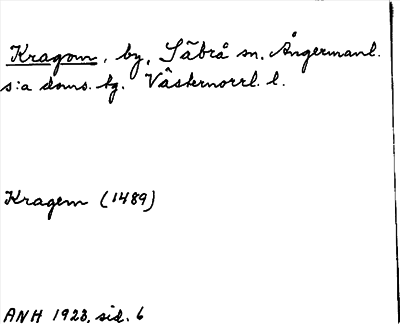 Kragom, by, Säbrå sn. Ångermanl.
s:a doms. tg. Västernorrl. l.
Kragem (1489)
ANH 1923, sid. 6